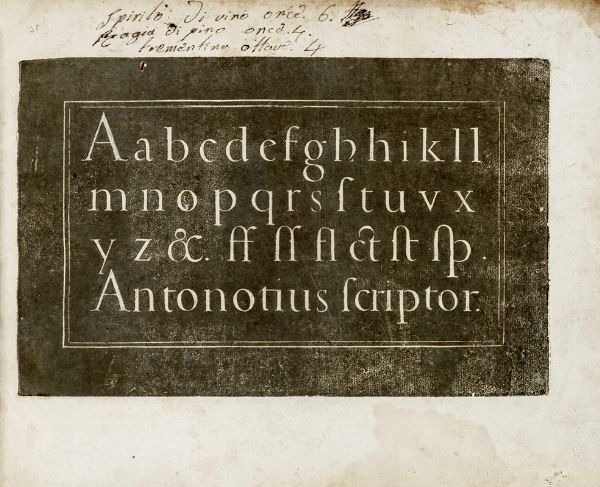 Spirito di vino once. 6.
Ragia di pino once. 4.
trementina ottave. 4
A a b c d e f g h h i k l l
m n o p q r s ſ t u v x
y z &. ff ſſ fl ct ſt ſp.
Antonotius ſcriptor.